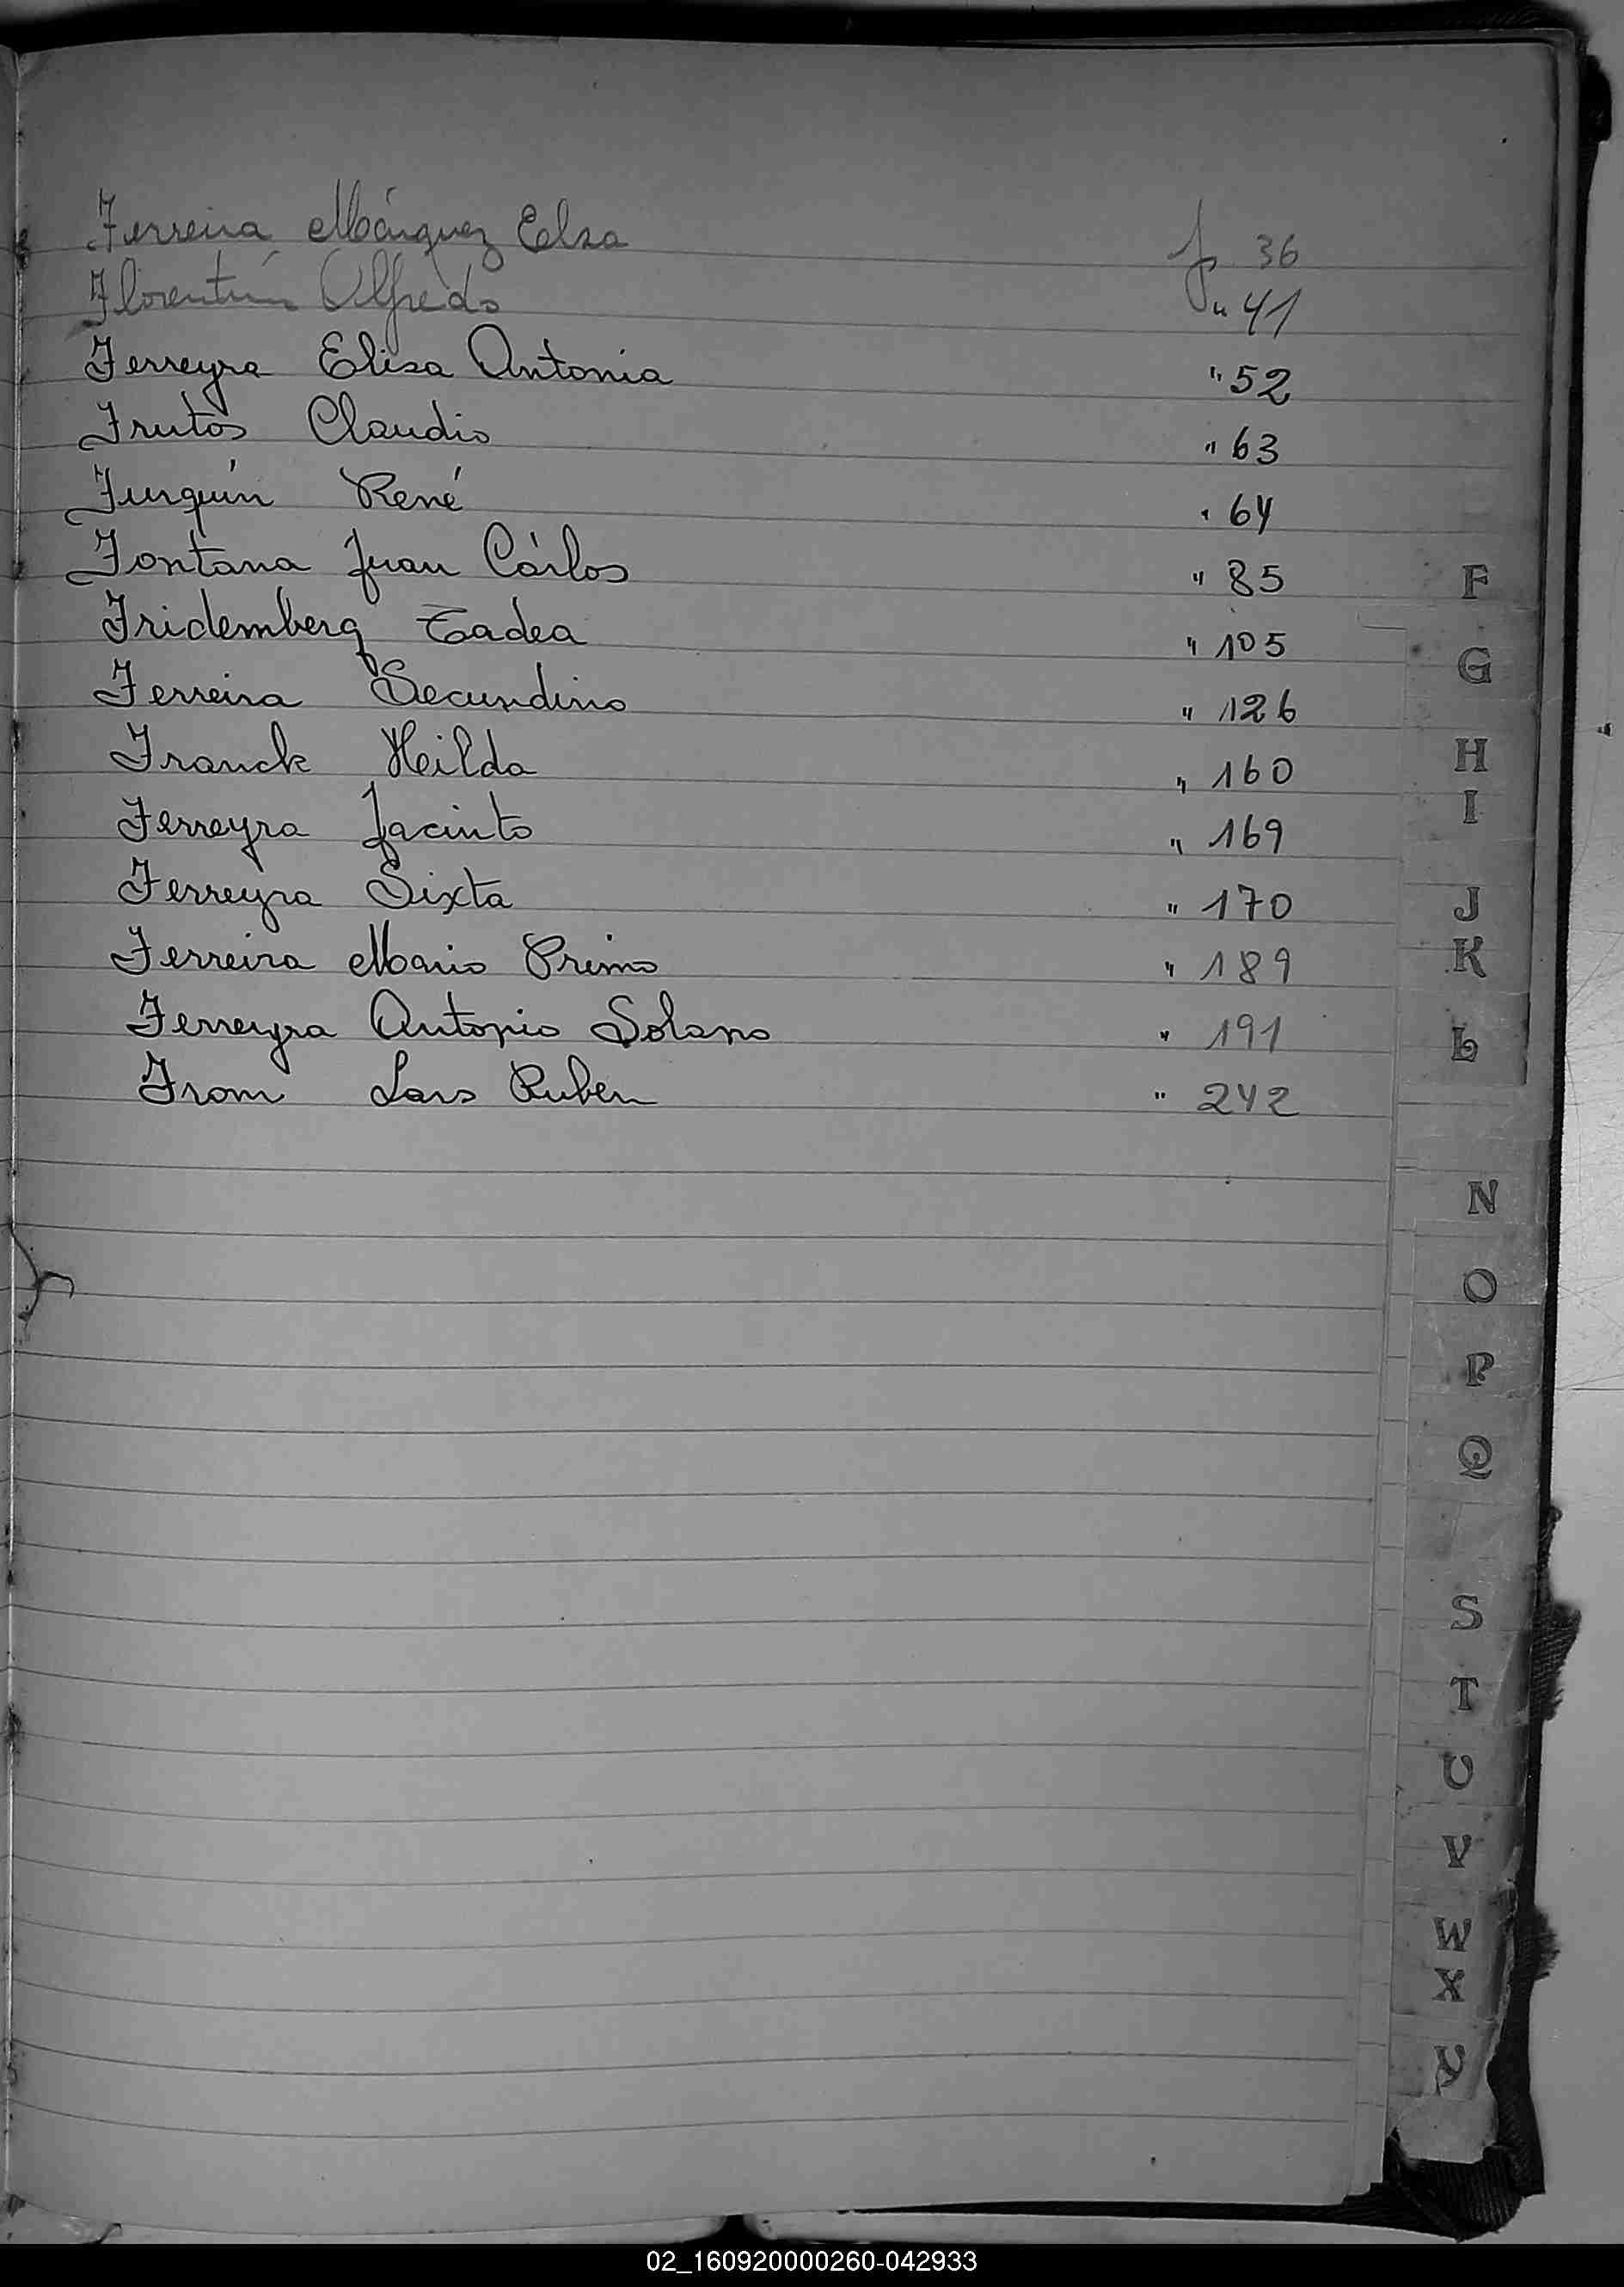 Ferreira Márquez Elsa f 36
Florentín Alfredo " 41
Ferreyra Elisa Antonia " 52
Frutos Claudio " 63
Furquín René " 64
Fontana Juan Cárlos " 85
Fridemberg Tadea " 105
Ferreira Secundino " 126
Franck Heilda " 160
Ferreyra Jacinto " 169
Ferreyra Sixta " 170
Ferreira Mario Primo " 189
Ferreyra Antonio Solano " 191
From Lars Ruben " 242
F
G
H
I
J
K
L
N
O
P
Q
S
T
U
V
W
X
Y
02_160920000260-042933